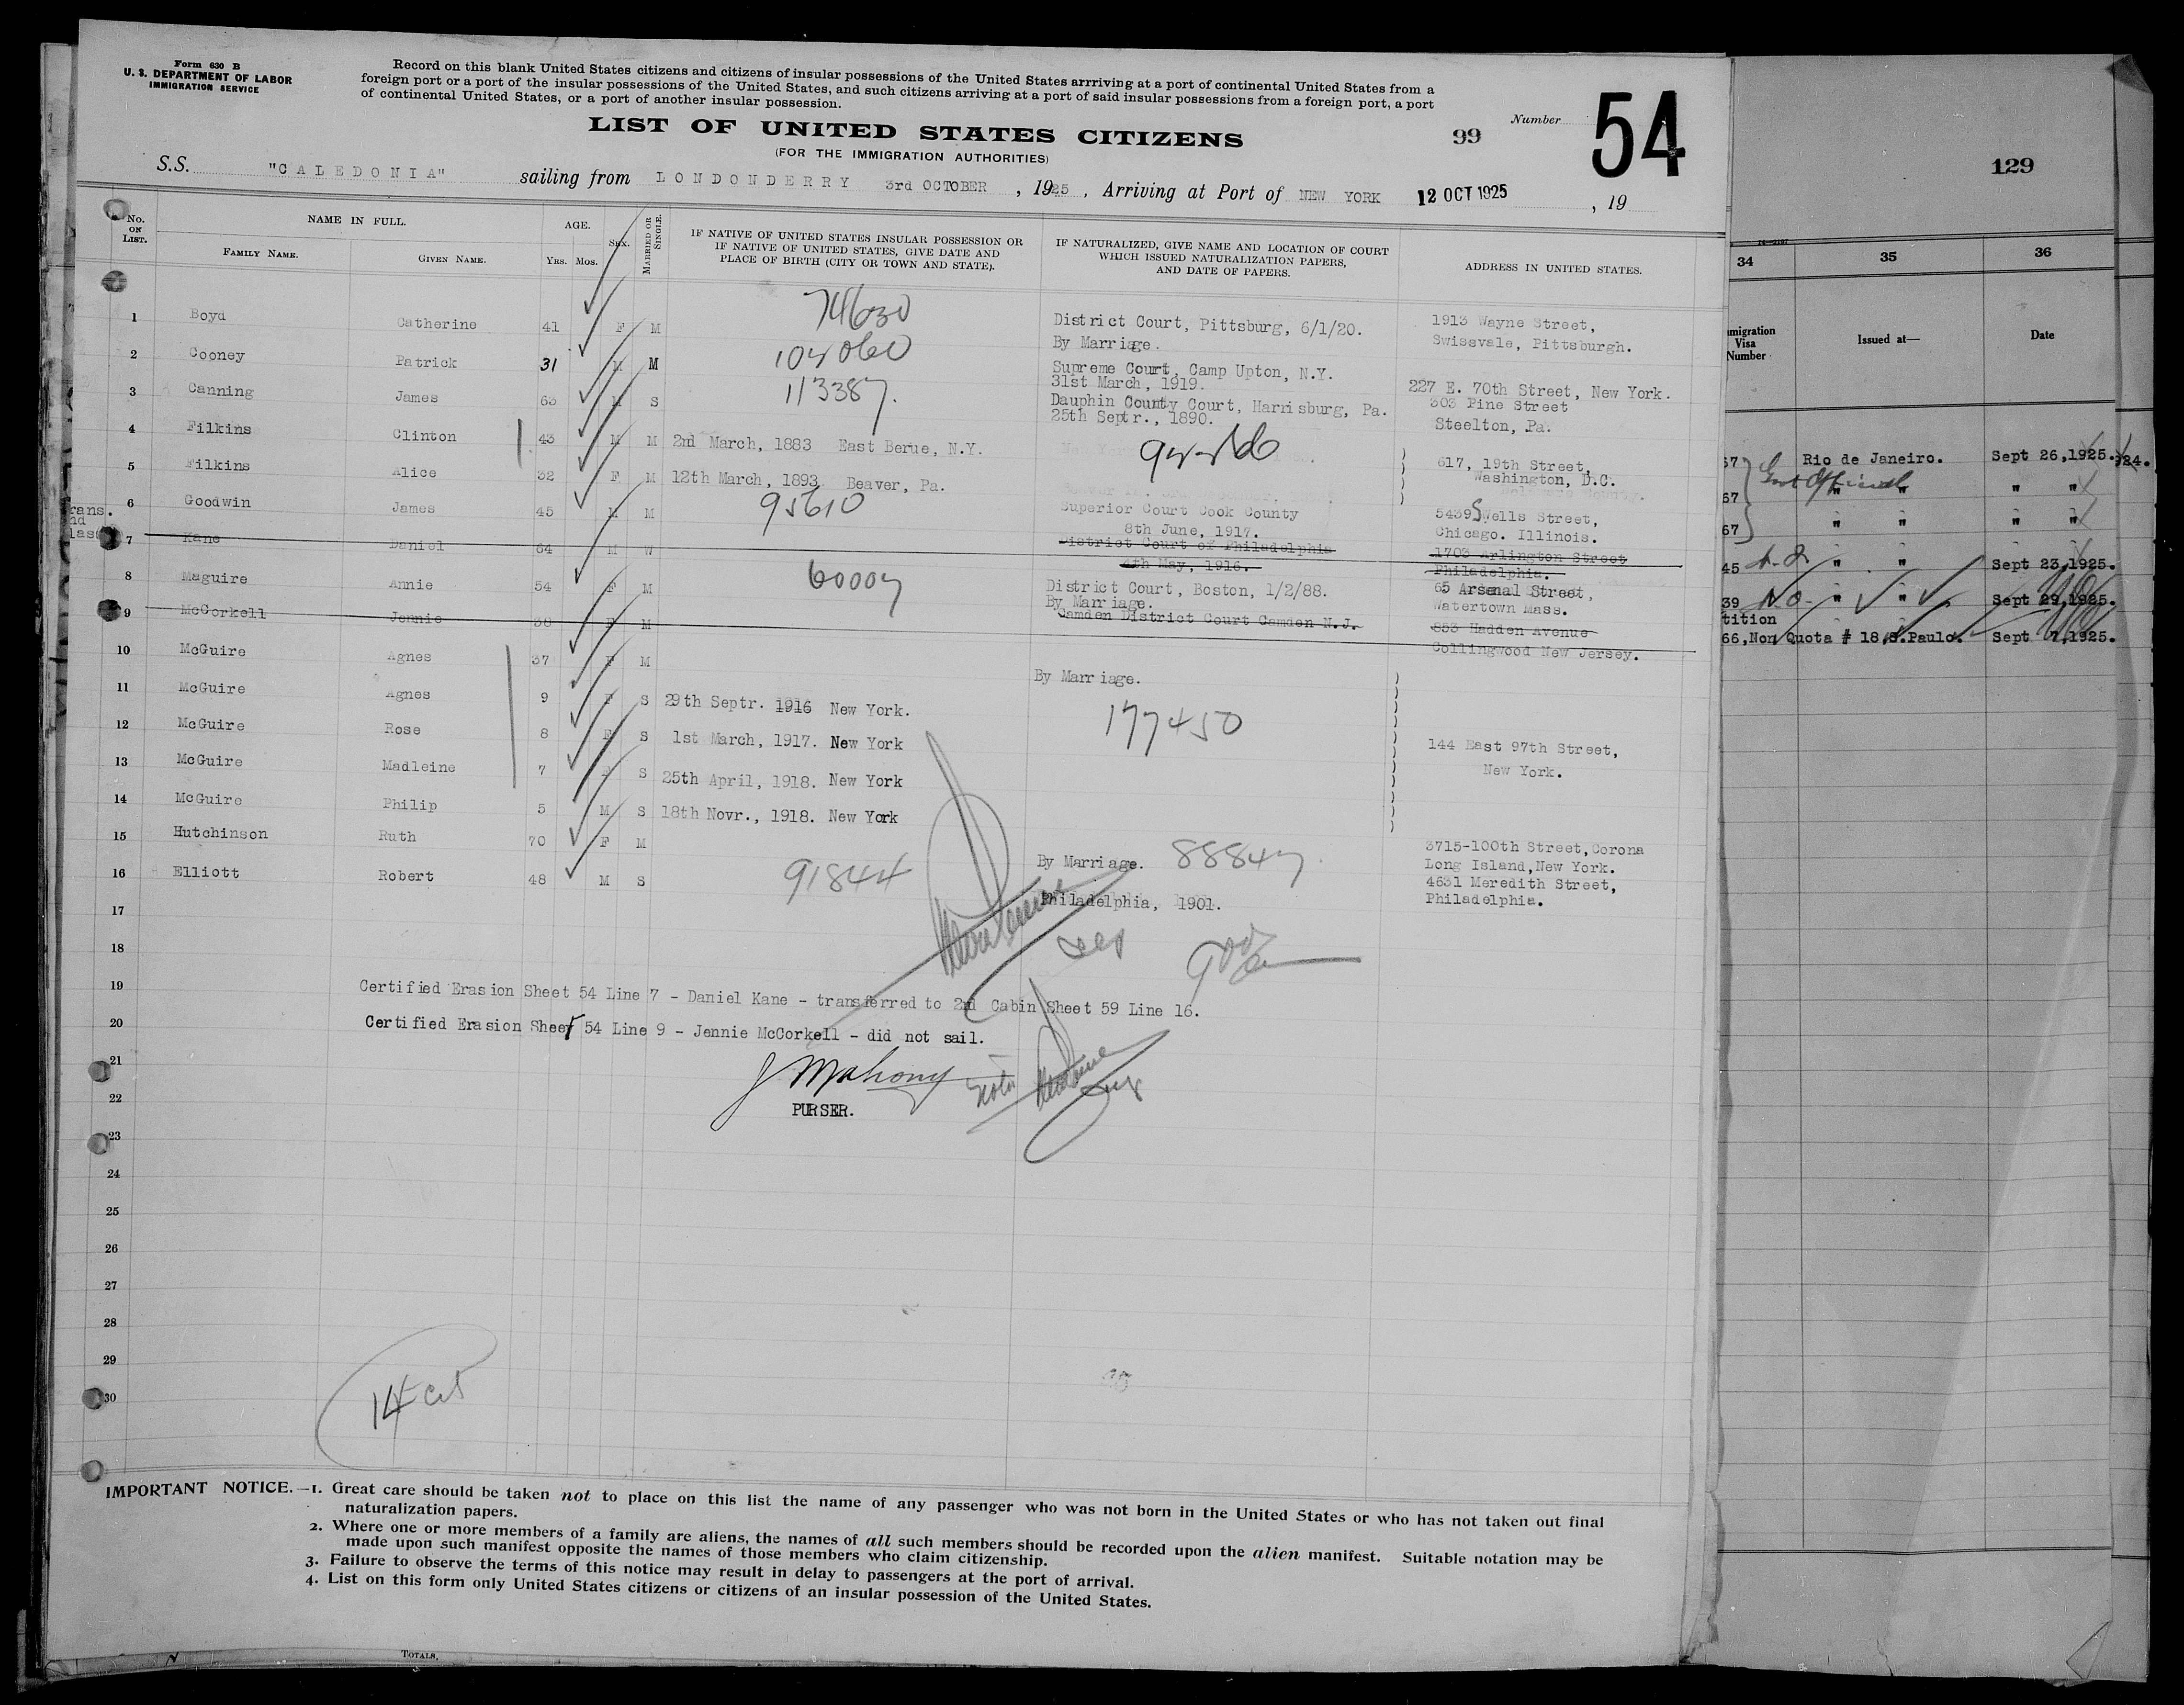 Form 630 B
U. S. DEPARTMENT OF LABOR
IMMIGRATION SERVICE
Record on this blank United States citizens and citizens of insular possessions of the United States arrriving at a port of continental United States from a
foreign port or a port of the insular possessions of the United States, and such citizens arriving at a port of said insular possessions from a foreign port, a port
of continental United States, or a port of another insular possession.
LIST OF UNITED STATES CITIZENS
(FOR THE IMMIGRATION AUTHORITIES)
99
Number
54
S.S. "CALEDONIA" sailing from LONDONDERRY 3rd OCTOBER , 1925, Arriving at Port of NEW YORK 12 OCT 1925 , 19
No. ON LIST.
NAME IN FULL.
FAMILY NAME.
GIVEN NAME.
AGE.
YRS. MOS.
SEX.
MARRIED OR SINGLE.
IF NATIVE OF UNITED STATES INSULAR POSSESSION OR
IF NATIVE OF UNITED STATES, GIVE DATE AND
PLACE OF BIRTH (CITY OR TOWN AND STATE).
IF NATURALIZED, GIVE NAME AND LOCATION OF COURT
WHICH ISSUED NATURALIZATION PAPERS,
AND DATE OF PAPERS.
ADDRESS IN UNITED STATES.
1 Boyd Catherine 41 F M 74630 District Court, Pittsburg, 6/1/20. 1913 Wayne Street,
By Marriage. Swissvale, Pittsburgh.
2 Cooney Patrick 31 M M Supreme Court, Camp Upton, N.Y.
31st March, 1919. 227 E. 70th Street, New York.
3 Canning James 63 M S 113387. Dauphin County Court, Harrisburg, Pa. 303 Pine Street
25th Septr., 1890. Steelton, Pa.
4 Filkins Clinton 43 M M 2nd March, 1883 East Berue, N.Y.
5 Filkins Alice 32 F M 12th March, 1893 Beaver, Pa. 617, 19th Street,
Washington, D.C.
6 Goodwin James 45 M M 95610 Superior Court Cook County 5439 S Wells Street,
8th June, 1917. Chicago. Illinois.
7 Kane Daniel 64 M W District Court of Philadelphia 1703 Arlington Street
4th May, 1916. Philadelphia.
8 Maguire Annie 54 F M 60007 District Court, Boston, 1/2/88. 65 Arsenal Street,
By Marriage. Watertown Mass.
9 McCorkell Jennie 38 F M Camden District Court Camden N.J. 853 Hadden Avenue
Collingwood New Jersey.
10 McGuire Agnes 37 F M By Marriage.
11 McGuire Agnes 9 F S 29th Septr. 1916 New York. 177450
12 McGuire Rose 8 F S 1st March, 1917. New York 144 East 97th Street,
13 McGuire Madleine 7 F S 25th April, 1918. New York New York.
14 McGuire Philip 5 M S 18th Novr., 1918. New York
15 Hutchinson Ruth 70 F M By Marriage. 88847 3715-100th Street, Corona
Long Island, New York.
16 Elliott Robert 48 M S 91844 Philadelphia, 1901. 4631 Meredith Street,
Philadelphia.
17
18
19 Certified Erasion Sheet 54 Line 7 - Daniel Kane - transferred to 2nd Cabin Sheet 59 Line 16.
20 Certified Erasion Sheet 54 Line 9 - Jennie McCorkell - did not sail.
21 J Mahony
22 PURSER.
23
24
25
26
27
28
29
30
14
IMPORTANT NOTICE.—1. Great care should be taken not to place on this list the name of any passenger who was not born in the United States or who has not taken out final
naturalization papers.
2. Where one or more members of a family are aliens, the names of all such members should be recorded upon the alien manifest. Suitable notation may be
made upon such manifest opposite the names of those members who claim citizenship.
3. Failure to observe the terms of this notice may result in delay to passengers at the port of arrival.
4. List on this form only United States citizens or citizens of an insular possession of the United States.
TOTALS,
129
34 35 36
Visa
Number
Issued at—
Date
67 Rio de Janeiro. Sept 26,1925.
67 " " " "
67 " " " "
45 " " Sept 23,1925.
39 N.O. " " Sept 29,1925.
66, Non Quota # 18, S.Paulo. Sept 7,1925.